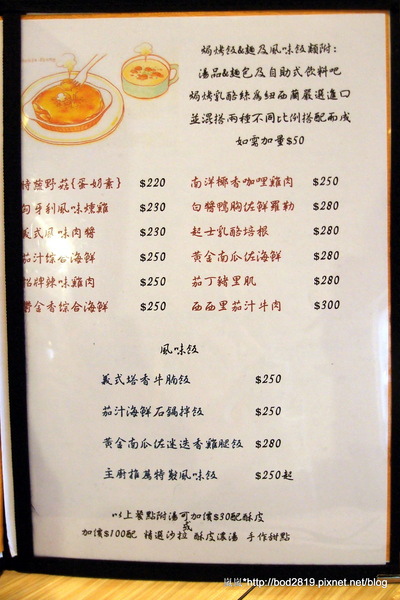 焗烤飯&麵及風味飯類附:
湯品&麵包及自助式飲料吧
焗烤乳酪絲為紐西蘭嚴選進口
並混搭兩種不同比例搭配而成
如需加量$50
時蔬野菇{蛋奶素} $220
匈牙利風味燻雞 $230
義式風味肉醬 $230
茄汁綜合海鮮 $250
招牌辣味雞肉 $250
鬱金香綜合海鮮 $250
南洋椰香咖哩雞肉 $250
白醬鴨胸佐鮮羅勒 $280
起士乳酪培根 $280
黃金南瓜佐海鮮 $280
茄丁豬里肌 $280
西西里茄汁牛肉 $300
風味飯
義式塔香牛肋飯 $250
茄汁海鮮石鍋拌飯 $250
黃金南瓜佐迷迭香雞腿飯 $280
主廚推薦特製風味飯 $250起
以上餐點附湯可加價$30配酥皮
或
加價$100配 精選沙拉 酥皮濃湯 手作甜點
http://bod2819.pixnet.net/blog